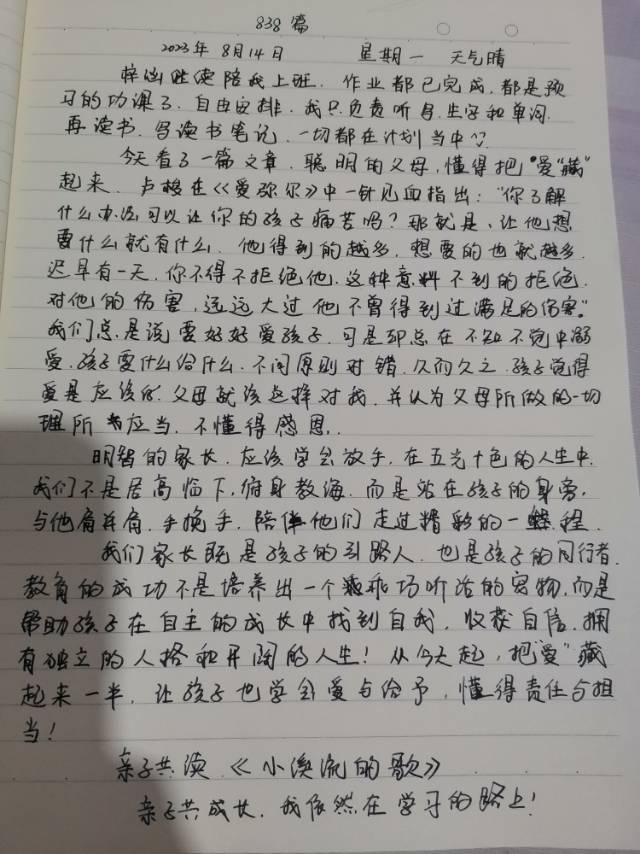 838篇
2023年8月14日 星期一 天气晴
继续陪我上班.作业都已完成.都是预
习的功课了.自由安排.我只负责听写.生字和单词.
再读书.写读书笔记.一切都在计划当中
今天看了一篇文章.聪明的父母,懂得把"爱"藏"
起来.卢梭在《爱弥尔》中一针见血指出:"你了解
什么办法可以让你的孩子痛苦吗?那就是、让他想
要什么就有什么.他得到的越多.想要的也就越多.
迟早有一天.你不得不拒绝他.这种意料不到的拒绝.
对他的伤害,远远大过他不曾得到过满足的伤害."
我们总是说要好好爱孩子.可是却总在不知不觉中溺
爱.孩子要什么给什么.不问原则对错.久而久之.孩子觉得
爱是应该的.父母就该这样对我.并认为父母所做的一切
理所应当.不懂得感恩..
明智的家长.应该学会放手.在五光十色的人生中.
我们不是居高临下,俯身教诲.而是站在孩子的身旁,
与他肩并肩.手挽手.陪伴他们走过精彩的一程.
我们家长既是孩子的引路人.也是孩子的同行者.
教育的成功不是培养出一个乖乖巧听话的宠物.而是
帮助孩子在自主的成长中找到自我.收获自信.拥
有独立的人格和开阔的人生!从今天起,把"爱"藏
起来一半.让孩子也学会爱与给予,懂得责任与担
当!
亲子共读《小溪流的歌》
亲子共成长.我依然在学习的路上!